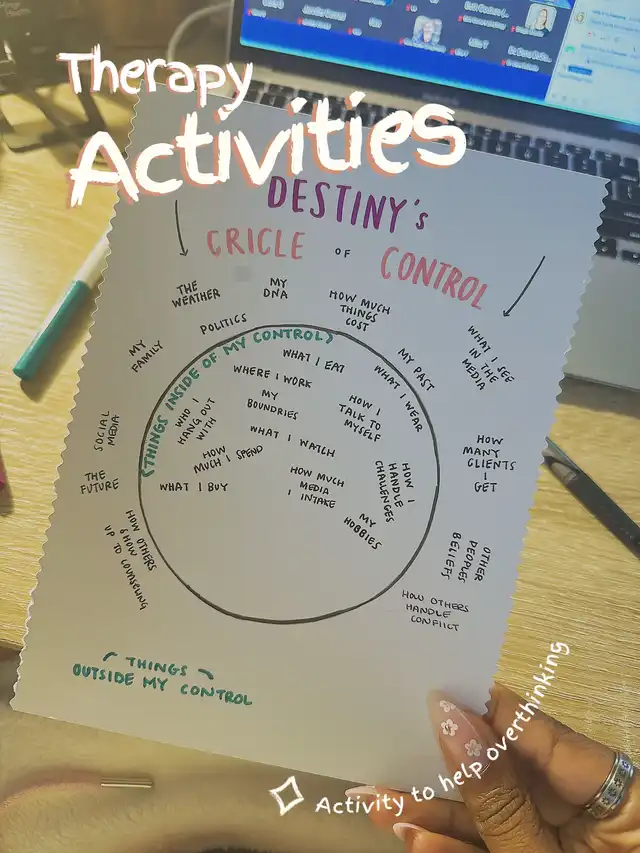 Therapy
Activities
DESTINY's
CRICLE OF CONTROL
THE
WEATHER
MY
DNA
HOW MUCH
THINGS
COST
POLITICS
MY
FAMILY
WHAT I SEE
IN THE
MEDIA
MY PAST
(THINGS INSIDE OF MY CONTROL)
WHAT I EAT
WHAT I WEAR
WHERE I WORK
MY
BOUNDRIES
HOW I
TALK TO
MYSELF
WHO I
HANG OUT
WITH
WHAT I WATCH
HOW
MUCH I SPEND
WHAT I BUY
HOW MUCH
MEDIA
I INTAKE
HOW I
HANDLE
CHALLENGES
MY
HOBBIES
SOCIAL
MEDIA
THE
FUTURE
HOW OTHERS
SHOW
UP TO COUNSELING
HOW
MANY
CLIENTS
I
GET
OTHER
PEOPLES
BELIEFS
HOW OTHERS
HANDLE
CONFLICT
THINGS
OUTSIDE MY CONTROL
Activity to help overthinking